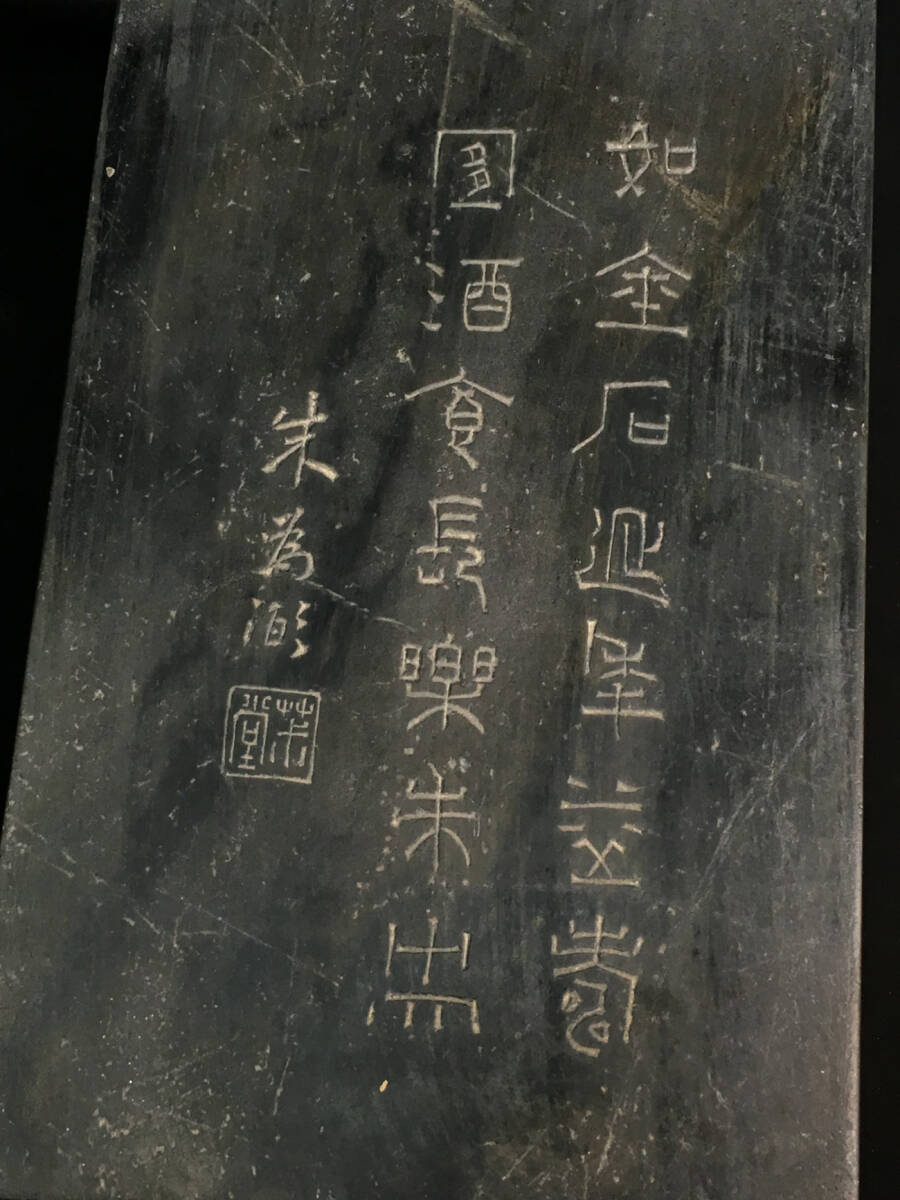 如金石延年益壽
宜酒食長樂未央
朱為弼
茮堂